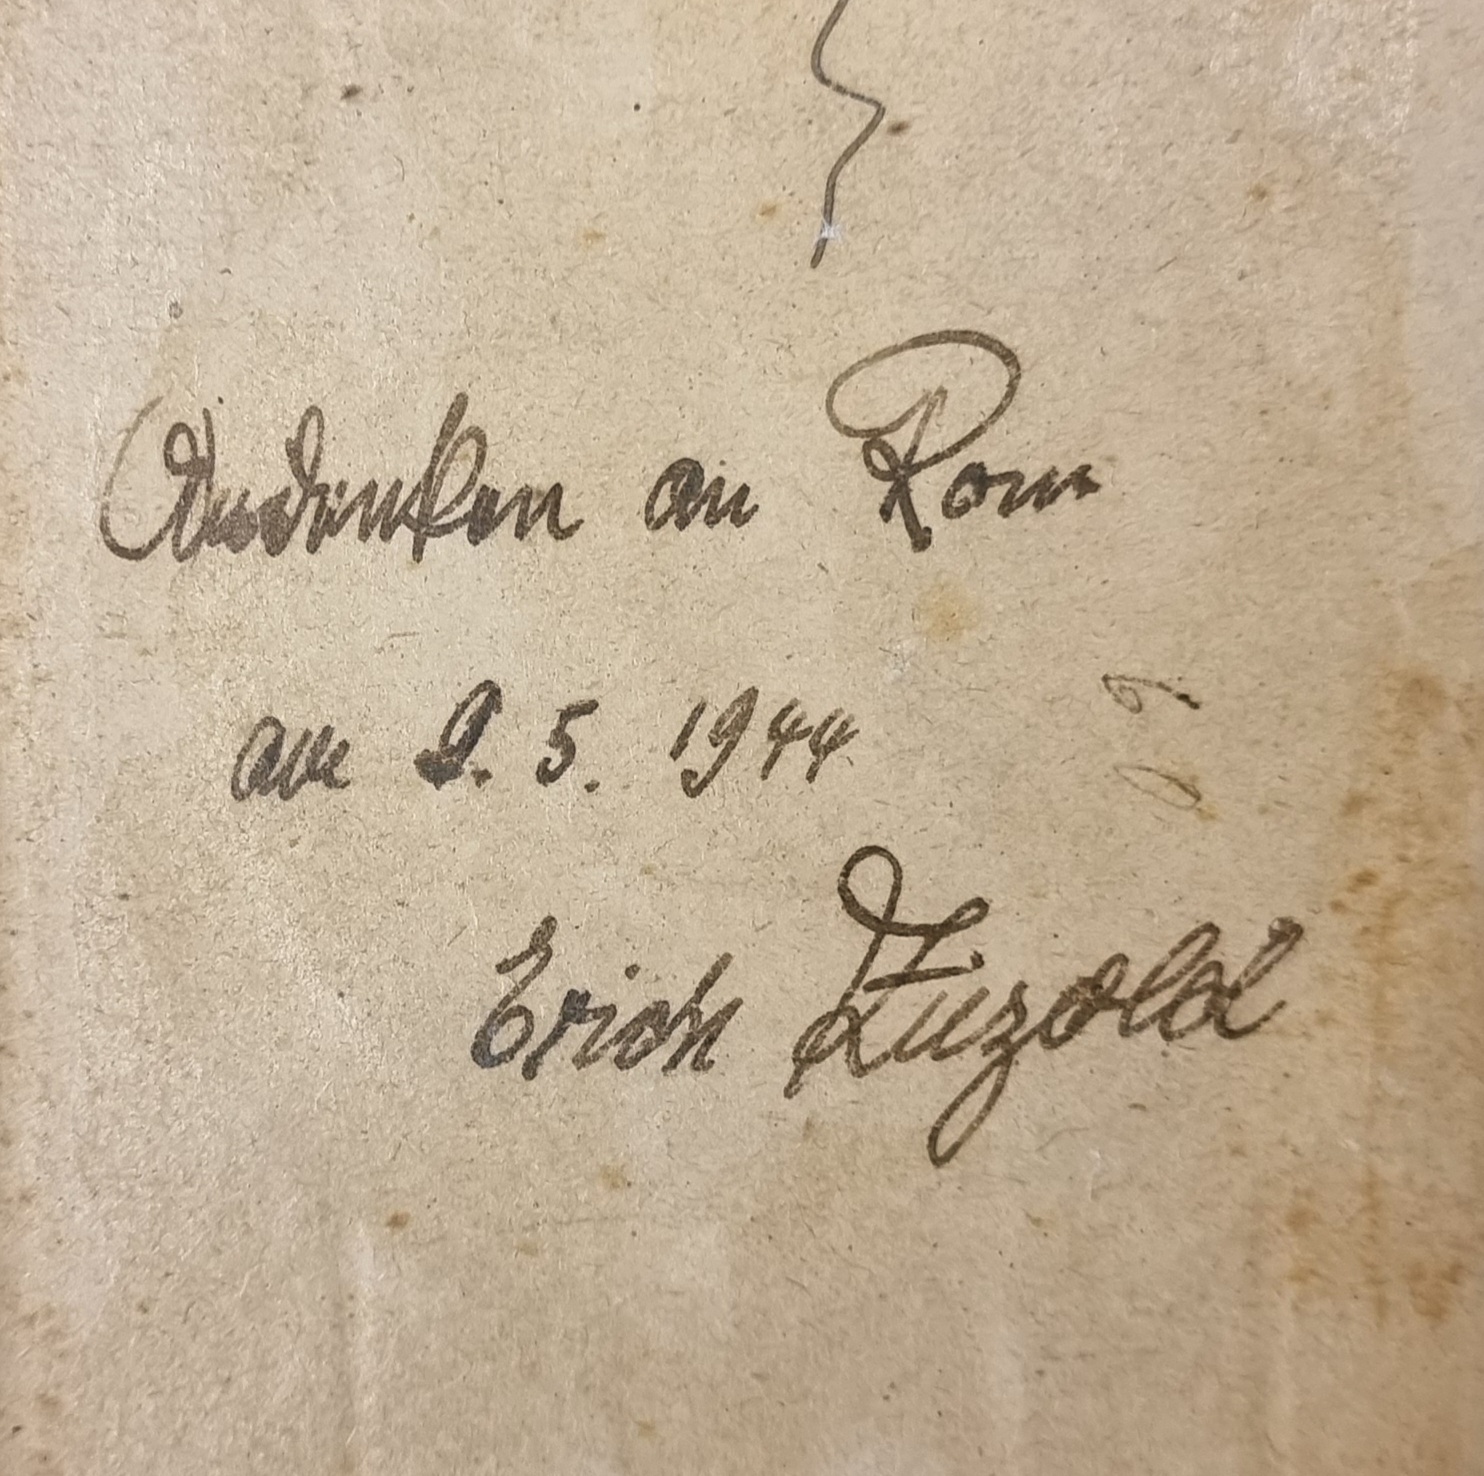 Andenken an Rom
am 2. 5. 1944
Erich